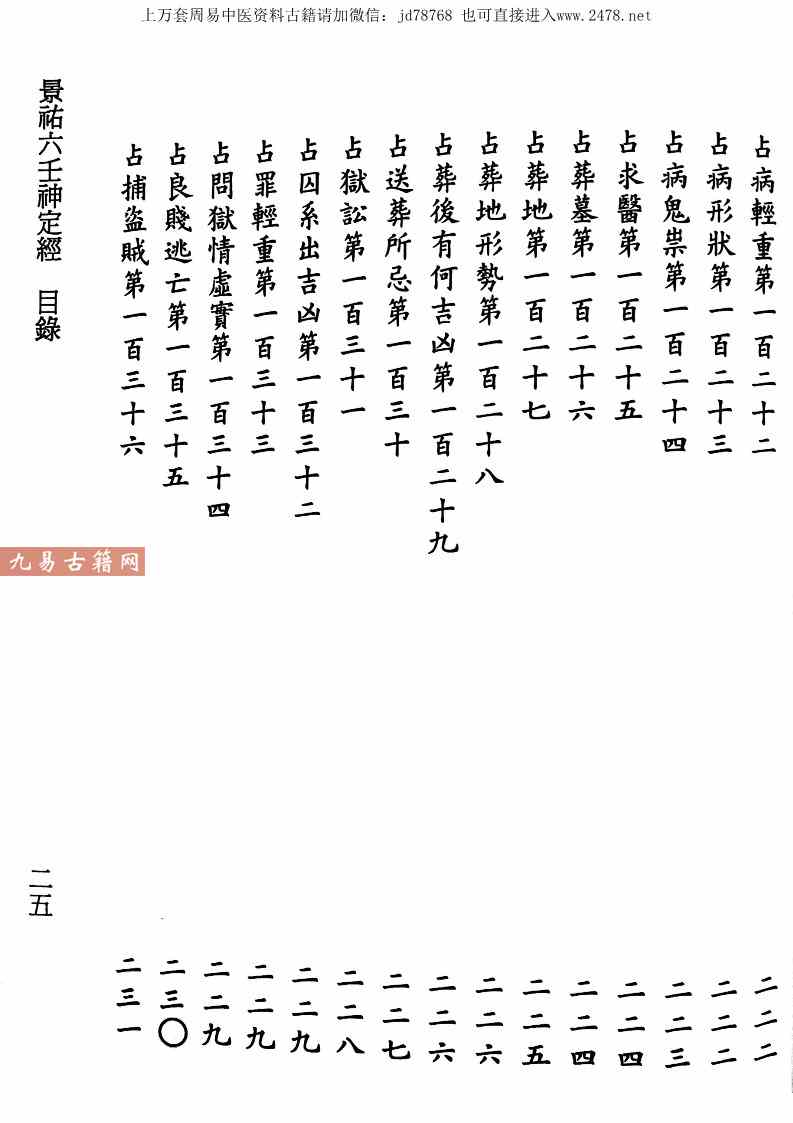 上万套周易中医资料古籍请加微信：jd78768 也可直接进入www.2478.net
占病輕重第一百二十二 二二二
占病形狀第一百二十三 二二二
占病鬼祟第一百二十四 二二三
占求醫第一百二十五 二二四
占葬墓第一百二十六 二二四
占葬地第一百二十七 二二五
占葬地形勢第一百二十八 二二六
占葬後有何吉凶第一百二十九 二二六
占送葬所忌第一百三十 二二七
占獄訟第一百三十一 二二八
占囚系出吉凶第一百三十二 二二九
占罪輕重第一百三十三 二二九
占問獄情虛實第一百三十四 二二九
占良賤逃亡第一百三十五 二三〇
占捕盜賊第一百三十六 二三一
景祐六壬神定經 目錄
二五
九易古籍网